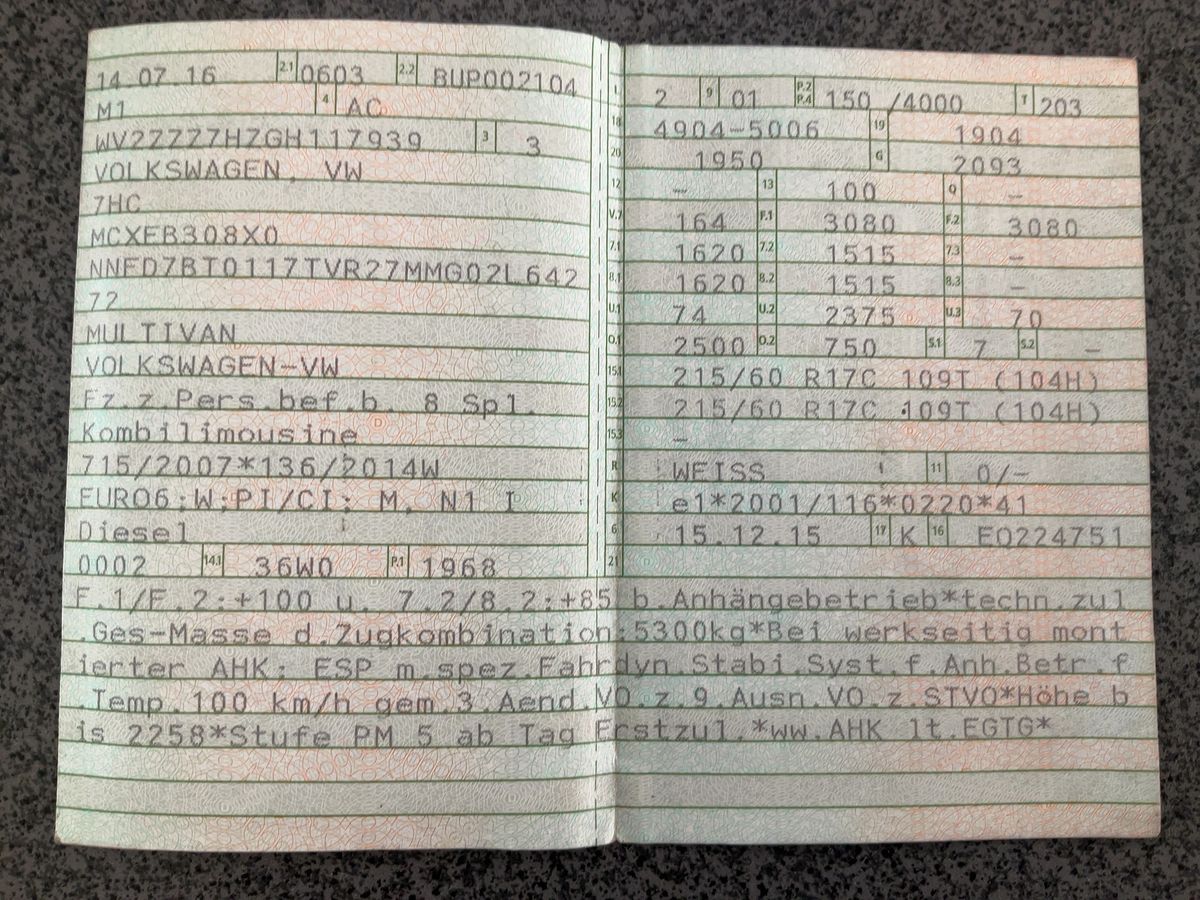 14.07.16 2.1 0603 2.2 BUP002104
M1 4 AC
WV2ZZZ7HZGH117939 3 3
VOLKSWAGEN, VW
7HC
MCXEB308X0
NNFD7BT0117TVR27MMG02L642
72
MULTIVAN
VOLKSWAGEN-VW
Fz.z.Pers.bef.b. 8 Spl.
Kombilimousine
715/2007*136/2014W
EURO6;W;PI/CI; M, N1 I
Diesel
0002 14.1 36W0 P.1 1968
L 2 9 01 P.2 P.4 150 /4000 T 203
18 4904-5006 19 1904
20 1950 G 2093
12 – 13 100 Q –
V.7 164 F.1 3080 F.2 3080
7.1 1620 7.2 1515 7.3 –
8.1 1620 8.2 1515 8.3 –
U.1 74 U.2 2375 U.3 70
O.1 2500 O.2 750 S.1 7 S.2 –
15.1 215/60 R17C 109T (104H)
15.2 215/60 R17C 109T (104H)
15.3 –
R WEISS 11 0/-
K e1*2001/116*0220*41
6 15.12.15 17 K 16 EQ224751
21
F.1/F.2:+100 u. 7.2/8.2:+85 b.Anhängebetrieb*techn.zul
.Ges-Masse d.Zugkombination:5300kg*Bei werkseitig mont
ierter AHK: ESP m.spez.Fahrdyn.Stabi.Syst.f.Anh.Betr.f
.Temp.100 km/h gem.3.Aend.VO.z.9.Ausn VO.z.STVO*Höhe b
is 2258*Stufe PM 5 ab Tag Erstzul.*ww.AHK lt.EGTG*